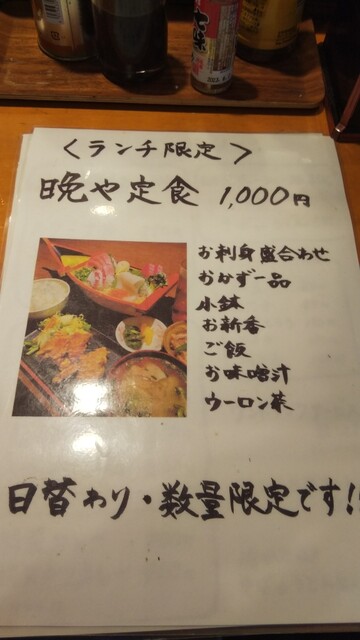 ＜ランチ限定＞
晩や定食 1,000円
お刺身盛合わせ
おかず一品
小鉢
お新香
ご飯
お味噌汁
ウーロン茶
日替わり・数量限定です!!